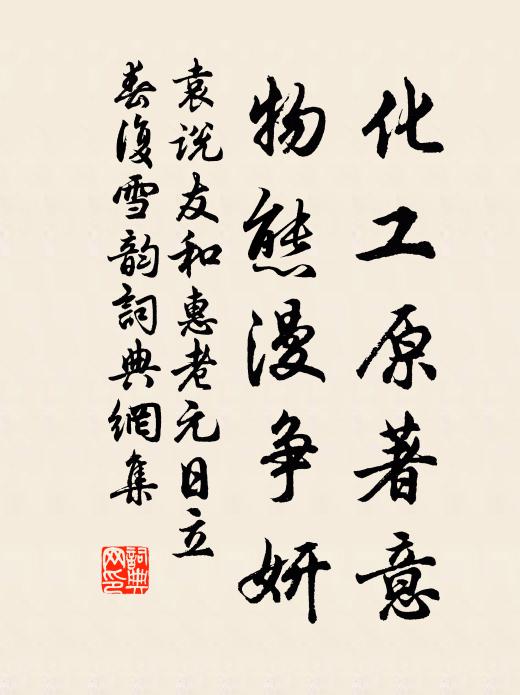 化工原著意
物態漫争妍
袁说友和惠老元日立
春復雪韵詞典網集
詞典
网印